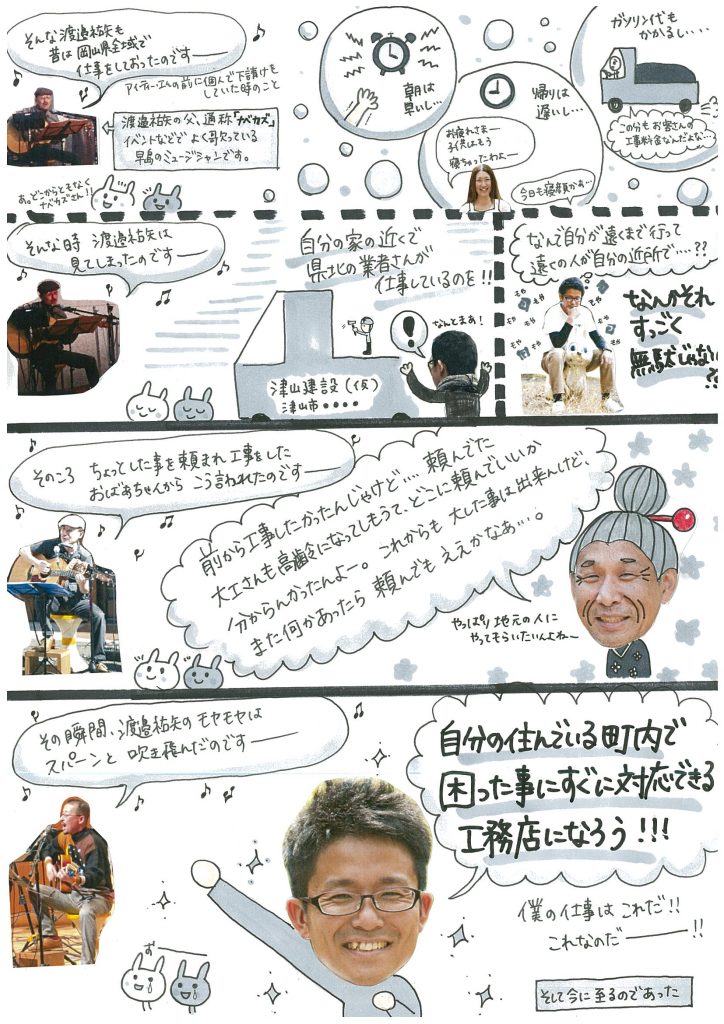 そんな渡邉祐矢も
昔は岡山県全域で
仕事をしておったのです――
アイティーエムの前に個人で下請けを
していた時のこと
渡邉祐矢の父、通称「ナベカズ」
イベントなどで よく歌っている
早島のミュージシャンです。
あっどこからともなく
ナベカズさん!!
朝は
早いし…
帰りは
遅いし…
お疲れさまー
子供はもう
寝ちゃったわよー
今日も寝顔かぁ…
ガソリン代も
かかるし‥‥
この分も お客さんの
工事料金なんだよな…
そんな時 渡邉祐矢は
見てしまったのです――
自分の家の近くで
県北の業者さんが
仕事しているのを!!
なんとまぁ!
津山建設(仮)
津山市・・・・
なんで自分が遠くまで行って
遠くの人が自分の近所で‥‥??
モヤ
モヤ
モヤ
なんかそれ
すっごく
無駄じゃない
??
そのころ ちょっとした事を頼まれ工事をした
おばあちゃんから こう言われたのです――
前から工事したかったんじゃけど‥‥ 頼んでた
大工さんも高齢になってしもうて、どこに頼んでいいか
分からんかったんよー。これからも 大した事は出来んけど、
また何かあったら 頼んでも ええかなあ…。
やっぱり 地元の人に
やってもらいたいんよね〜
その瞬間、渡邉祐矢のモヤモヤは
スパーンと 吹き飛んだのです――
自分の住んでいる町内で
困った事にすぐに対応できる
工務店になろう!!!
僕の仕事は これだ!!
これなのだ――!!
そして今に至るのであった